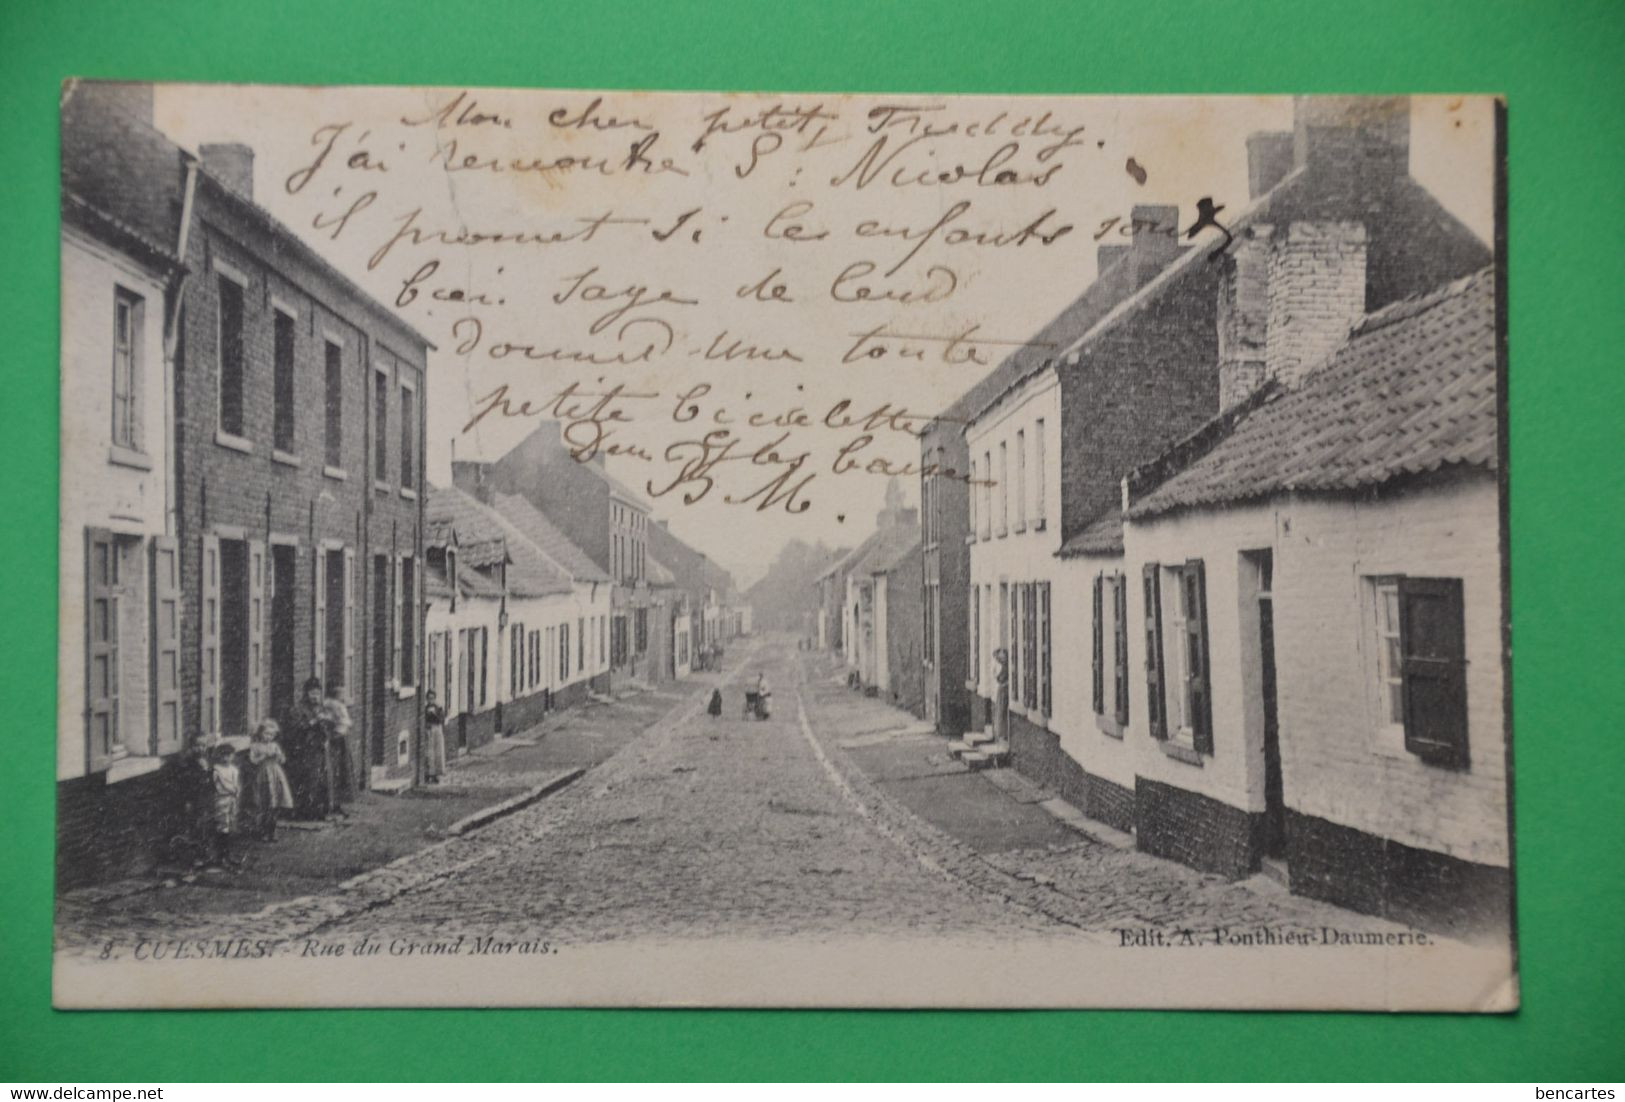 Mon cher petit, Freddy.
J'ai rencontré S: Nicolas
il promet si les enfants sont
bien sage de leur
donner une toute
petite bicicolette
Deux Et les baise
B M.
8. CUESMES. - Rue du Grand Marais.
Edit. A. Ponthieu-Daumerie.
bencartes